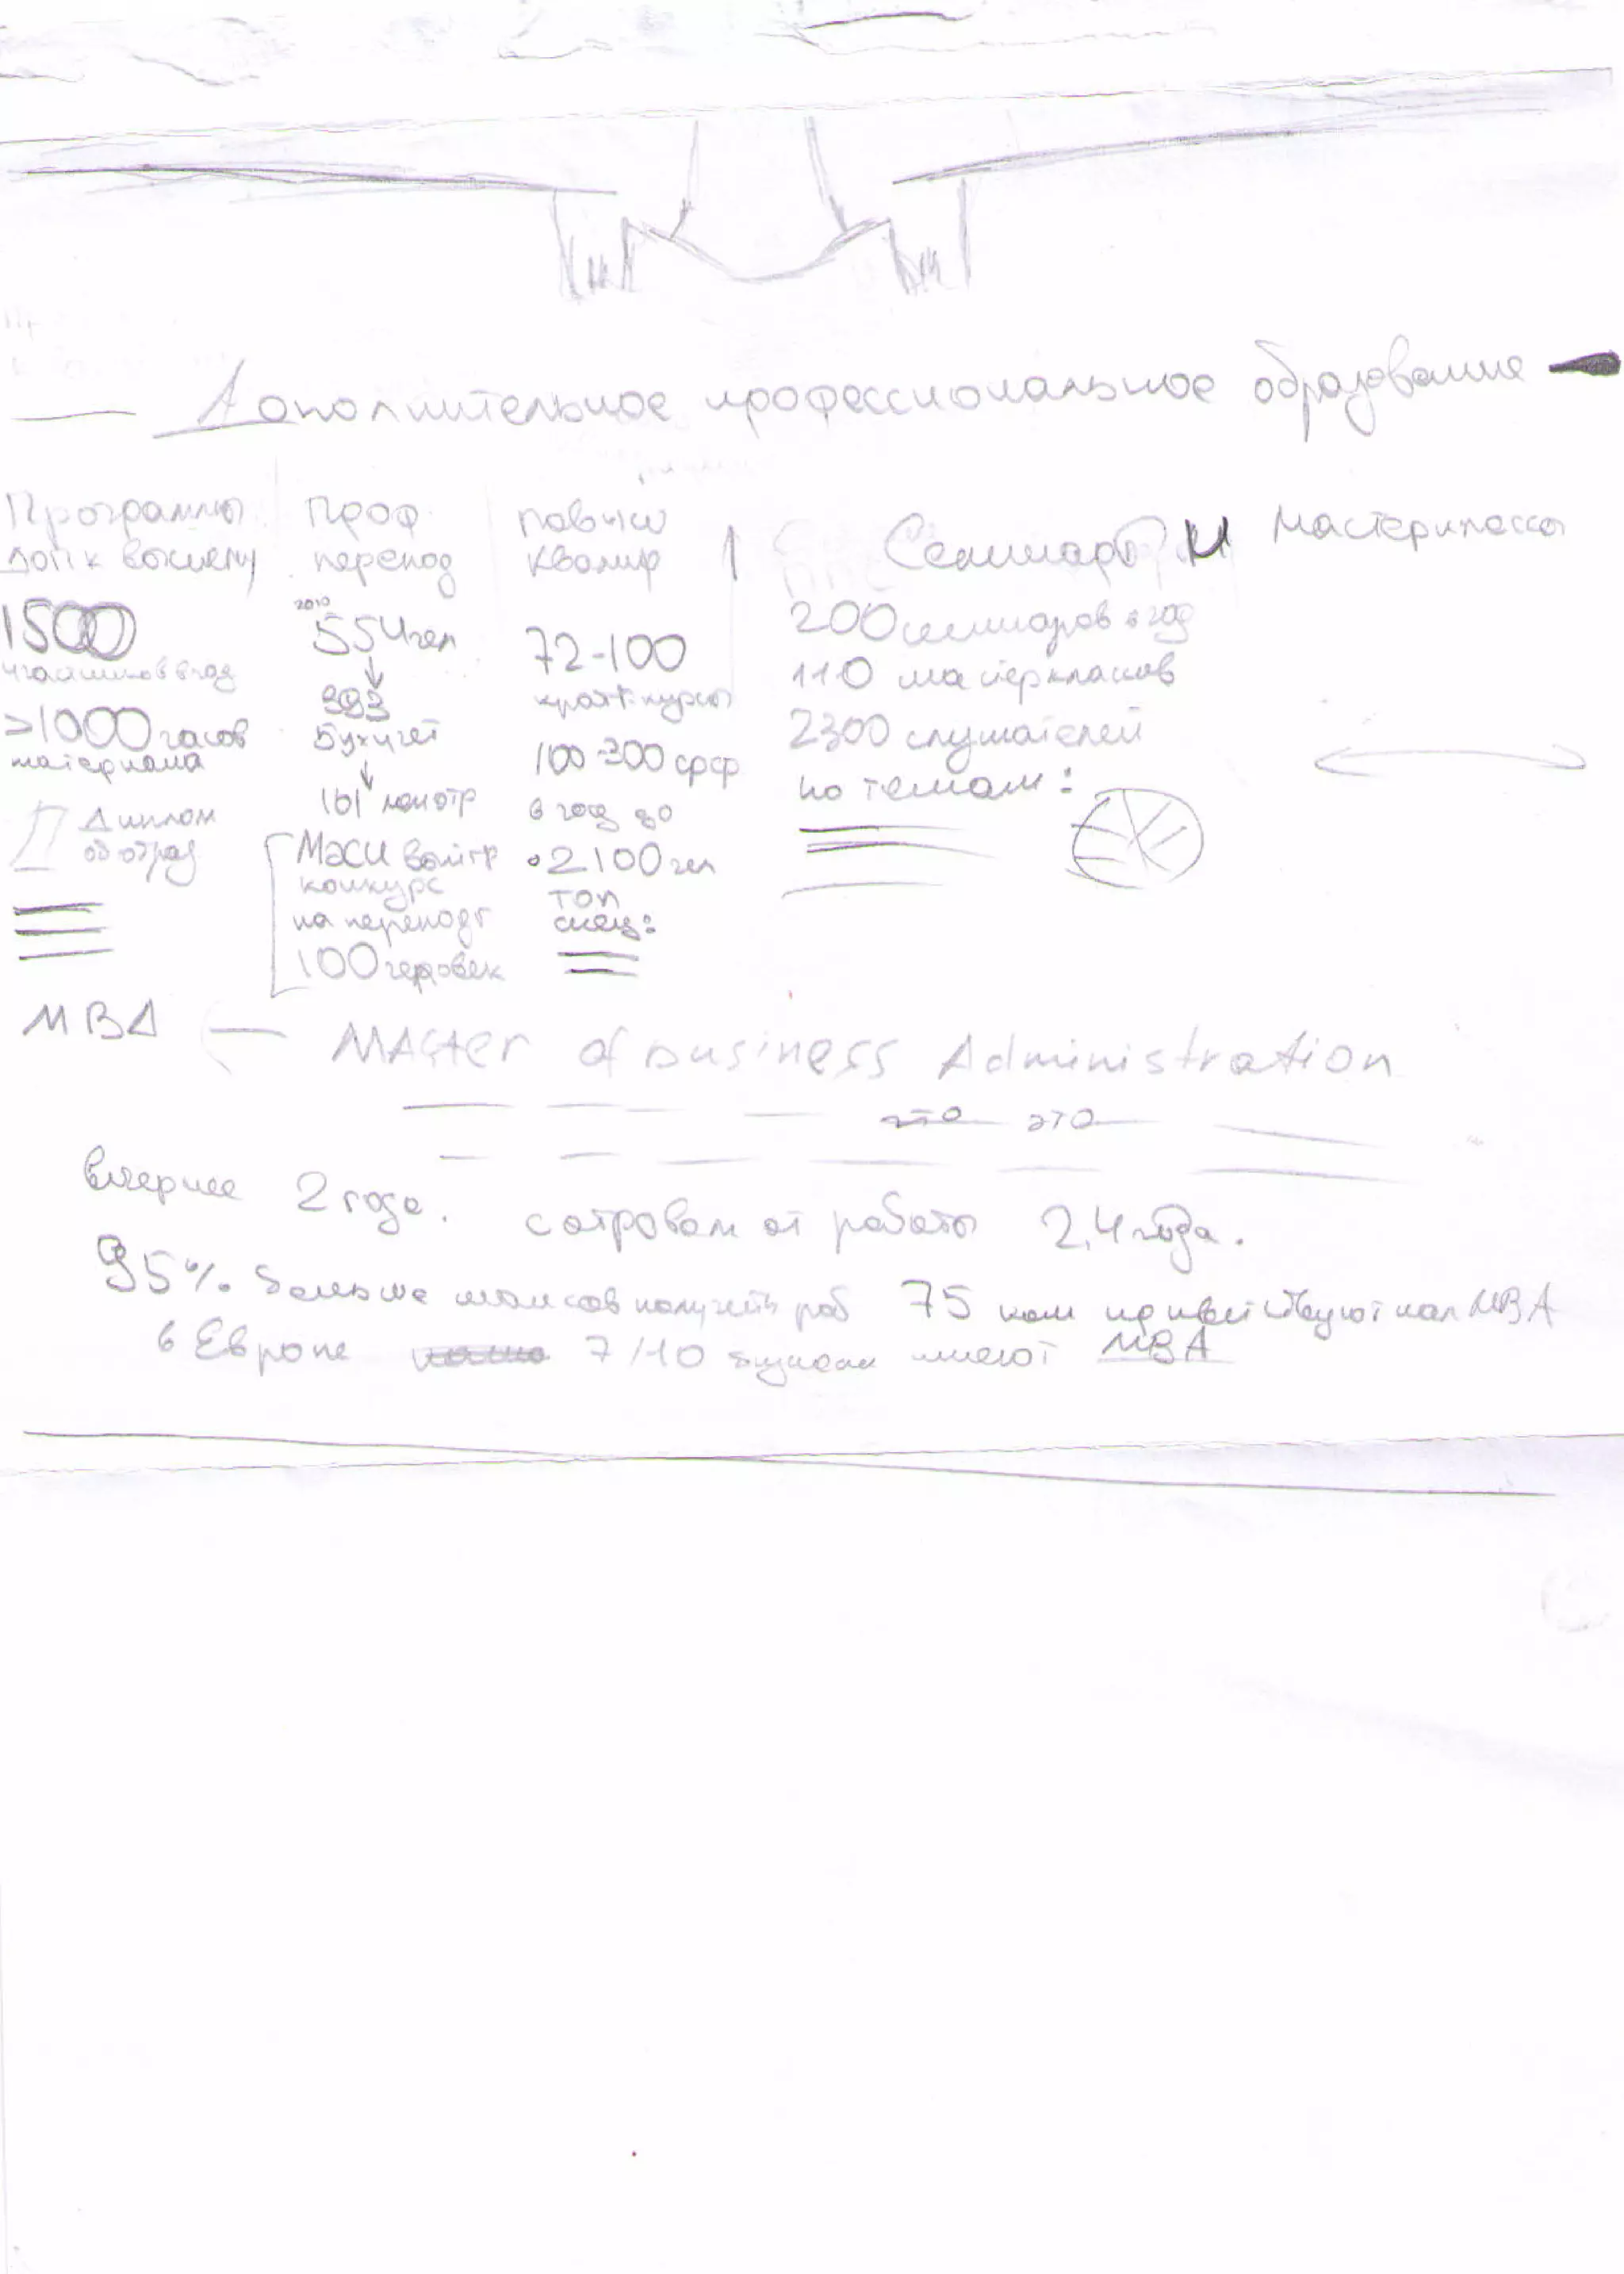 Дополнительное профессиональное образование
Программы
доп к высшему
1500
в год
>1000 часов
материала
Диплом
об образ
Проф
перепод
2010
554 чел
393
Бухучет
161
МЭСИ выигр
конкурс
на переподг
100 человек
повыш
квалиф
72-100
кратк. курсы
100-300 сфср
в год до
2100 чел
топ
спец:
Семинары и Мастерклассы
200 семинаров в год
110 мастерклассов
2300 слушателей
по темам:
MBA
MAster of Business Administration
это это
вечернее 2 года. с отрывом от работы 2,4 года.
95% больше шансов получить раб 75 ком приветствуют нал MBA
в Европе 7/10 имеют MBA